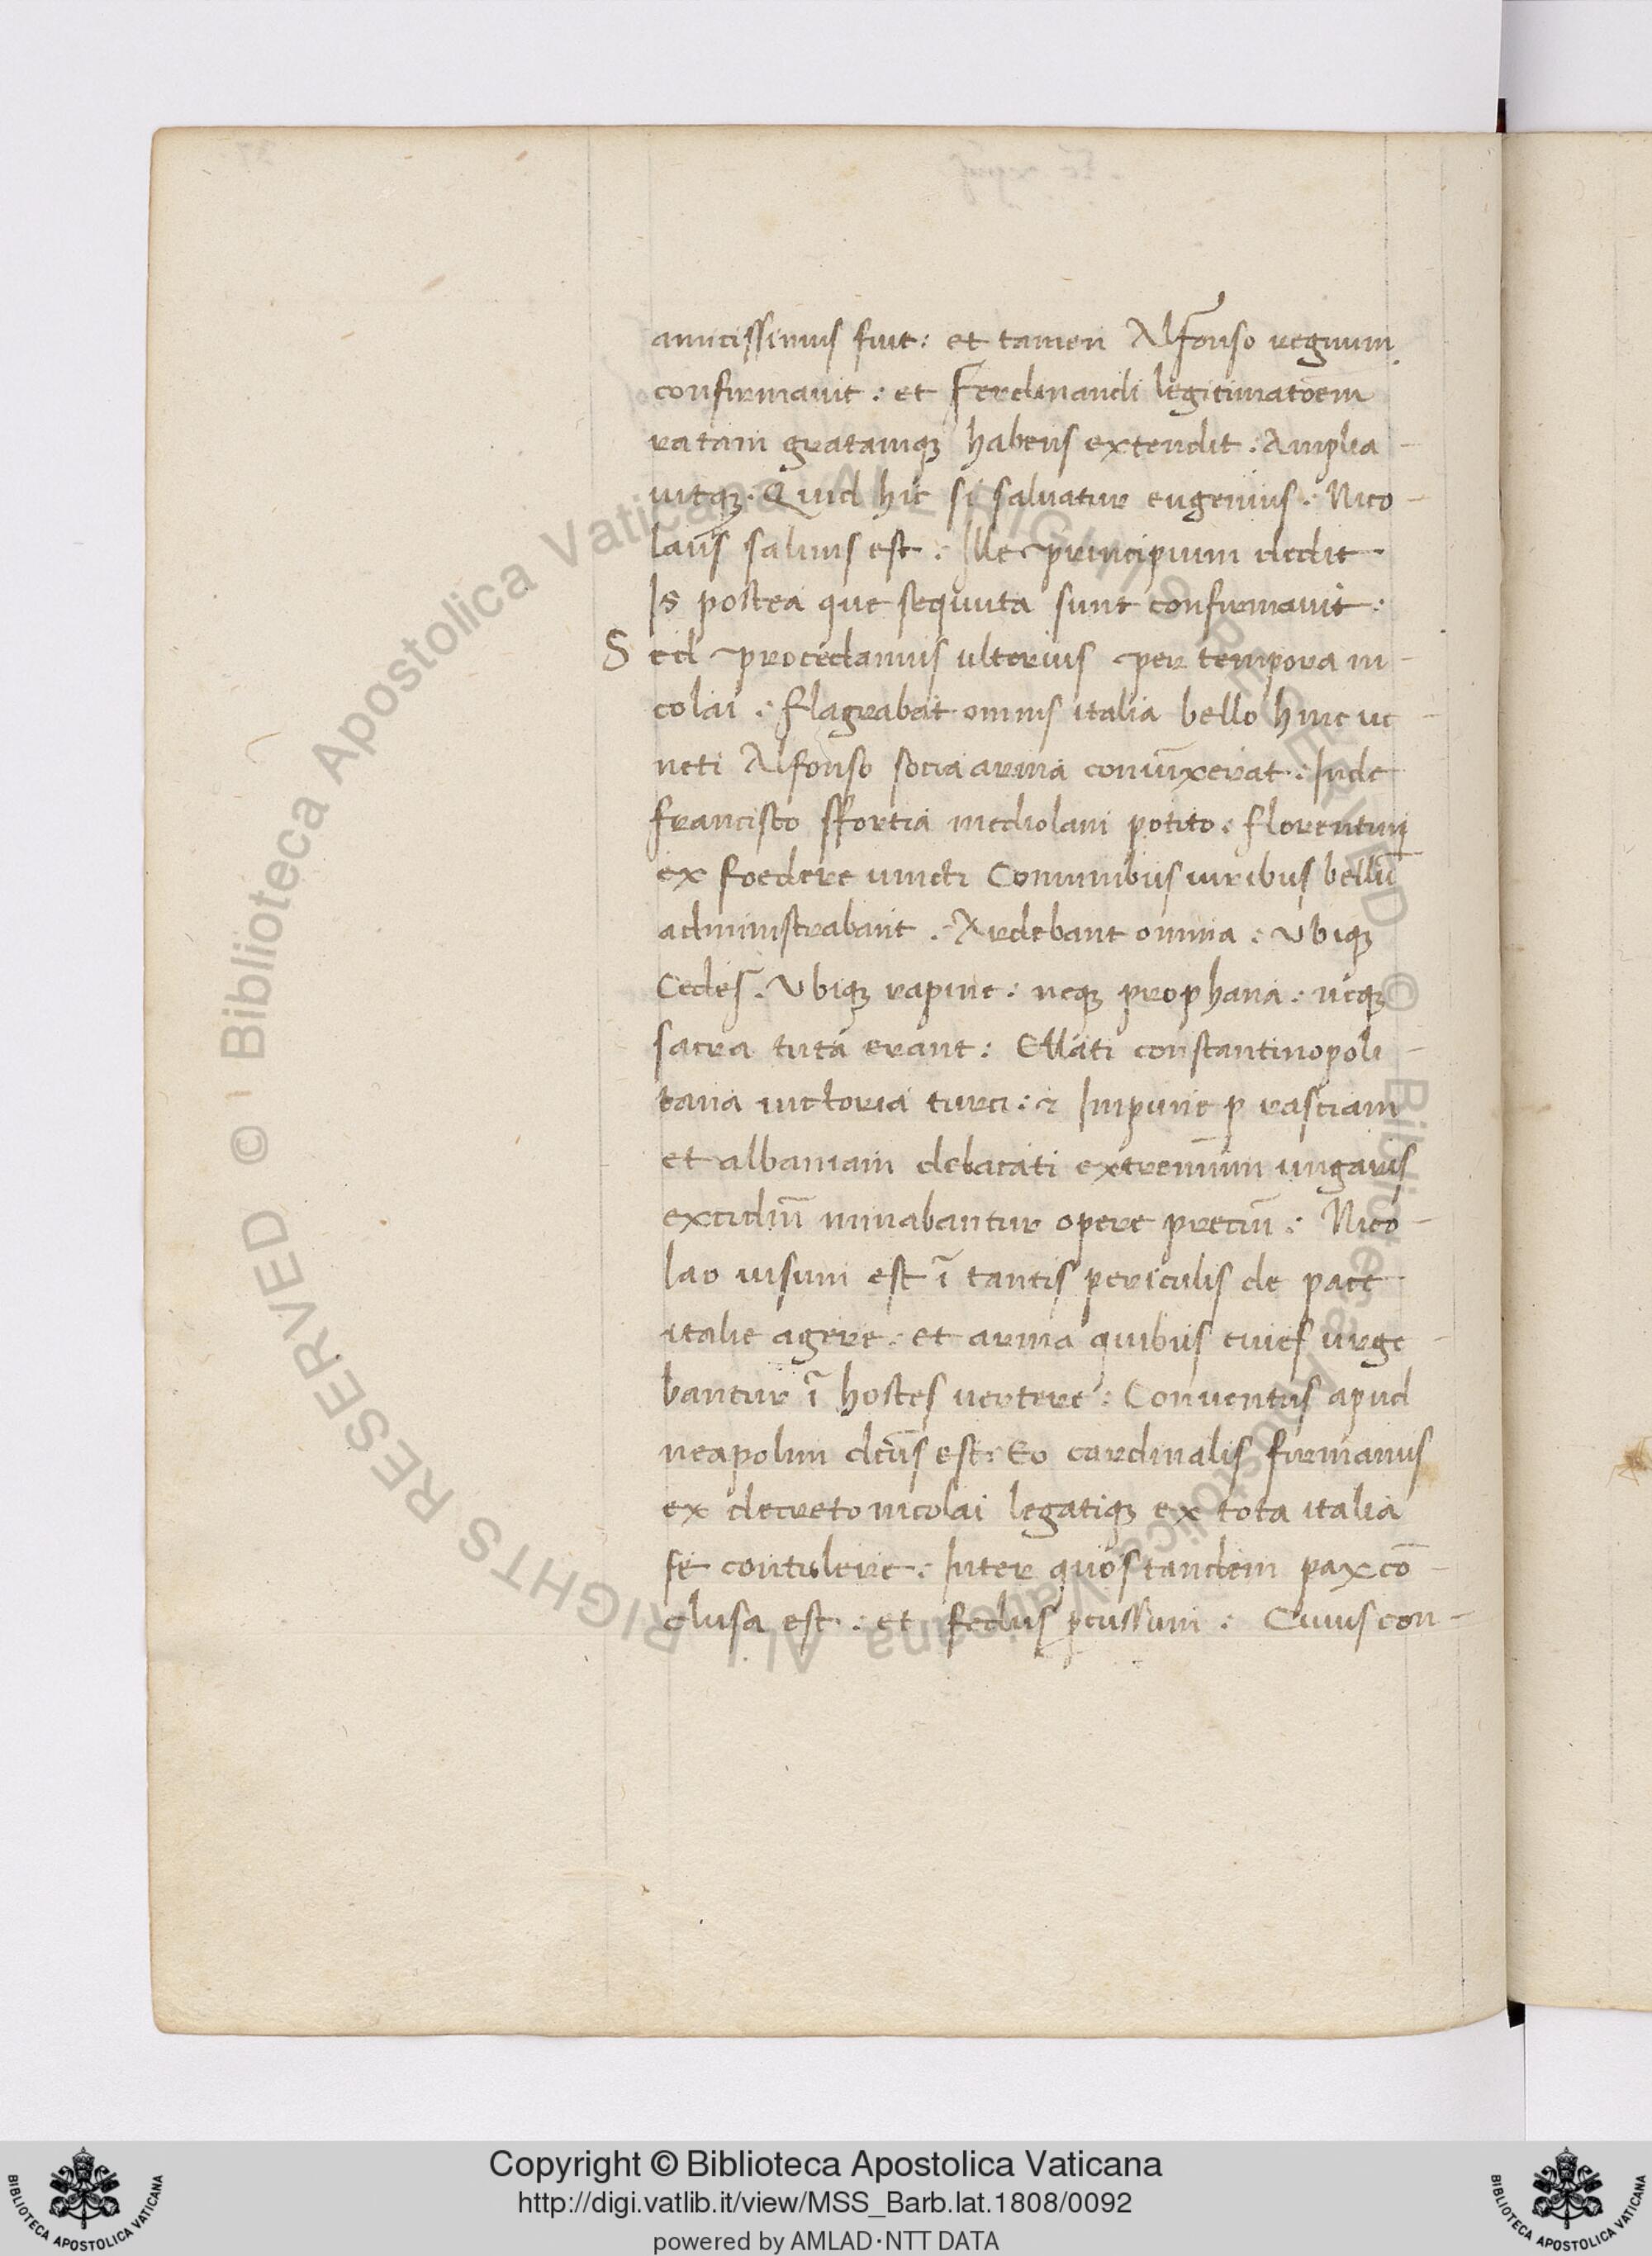 amicissimus fuit: et tamen Alfonso regnum
confirmauit: et Ferdinandi legitimatōem
ratam gratamqꝫ habens extendit: Amplia-
uitqꝫ. Quid hic si saluatur eugenius: Nico-
laus saluus est: Ille principium dedit.
Is postea que sequuta sunt confirmauit:
Sed procedamus ulterius per tempora ni-
colai: flagrabat omnis italia bello hinc ue-
neti Alfonso socia arma coniūxerāt: Inde
francisco sfortia mediolani potito: florentini
ex foedere uincti Comunibus uiribus bellū
administrabant: Ardebant omnia: Vbiqꝫ
Cedes. Vbiqꝫ rapine: neqꝫ prophana: neqꝫ
sacra tuta erant: Ellati constantinopoli-
tana uictoria turci: & Impune ꝑ rasciam
et albaniam debacati extremum ungaris
excidiū minabantur opere preciū: Nico-
lao uisum est ī tantis periculis de pace
italie agere: et arma quibus ciues urge-
bantur ī hostes uertere: Conuentus apud
neapolim dcūs est: Eo cardinalis firmanus
ex decreto nicolai legatiqꝫ ex tota italia
se contulere: Inter quos tandem pax cō-
clusa est: et fedus ꝑcussum: Cuius con-
Copyright © Biblioteca Apostolica Vaticana
http://digi.vatlib.it/view/MSS_Barb.lat.1808/0092
powered by AMLAD·NTT DATA
BIBLIOTECA APOSTOLICA VATICANA
BIBLIOTECA APOSTOLICA VATICANA
© Biblioteca Apostolica Vaticana ALL RIGHTS RESERVED
© Biblioteca Apostolica Vaticana ALL RIGHTS RESERVED